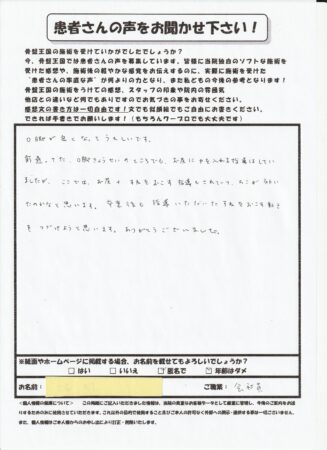 患者さんの声をお聞かせ下さい！
骨盤王国の施術を受けていかがでしたでしょうか？
今、骨盤王国では患者さんの声を募集しています。皆様に当院独自のソフトな施術を
受けた感想や、施術後の軽やかな感覚をお伝えするのに、実際に施術を受けた
“患者さんの率直な声”が何よりの力となり、また私どもの今後の参考となります！
骨盤王国の施術をうけての感想、スタッフの印象や院内の雰囲気
他店との違いなど何でもありですのでお気づきの事をお寄せください。
感想文の書き方は一切自由です！文でも似顔絵でもご自由にお書きください。
できれば手書きでお願いします！（もちろんワープロでも大丈夫です）
O脚が良くなってうれしいです。
前通ってた、O脚きょうせいのところでも、お尻に力を入れる指導はしてい
ましたが、ここでは、お尻＋
すねをおこす指導
たのかなと思います。
卒業後も指導いただいたすねをおこす動き
をつづけようと思います。ありがとうございました。
※紙面やホームページに掲載する場合、お名前を載せてもよろしいでしょうか？
□ はい □ いいえ ☑ 匿名で □ 年齢はダメ
お名前： ご職業： 会社員
＜個人情報の保護について＞ このお預かりにご記入いただきました情報は、当院の貴重なお客様データとして厳重に管理し、今後のご案内をお送
りするためのみに使用させていただきます。これ以外の目的で使用することも及びご本人の許可なく外部への開示・提供する事は一切ございません。
また、個人情報はご本人様からのお申し出により訂正・削除いたします。